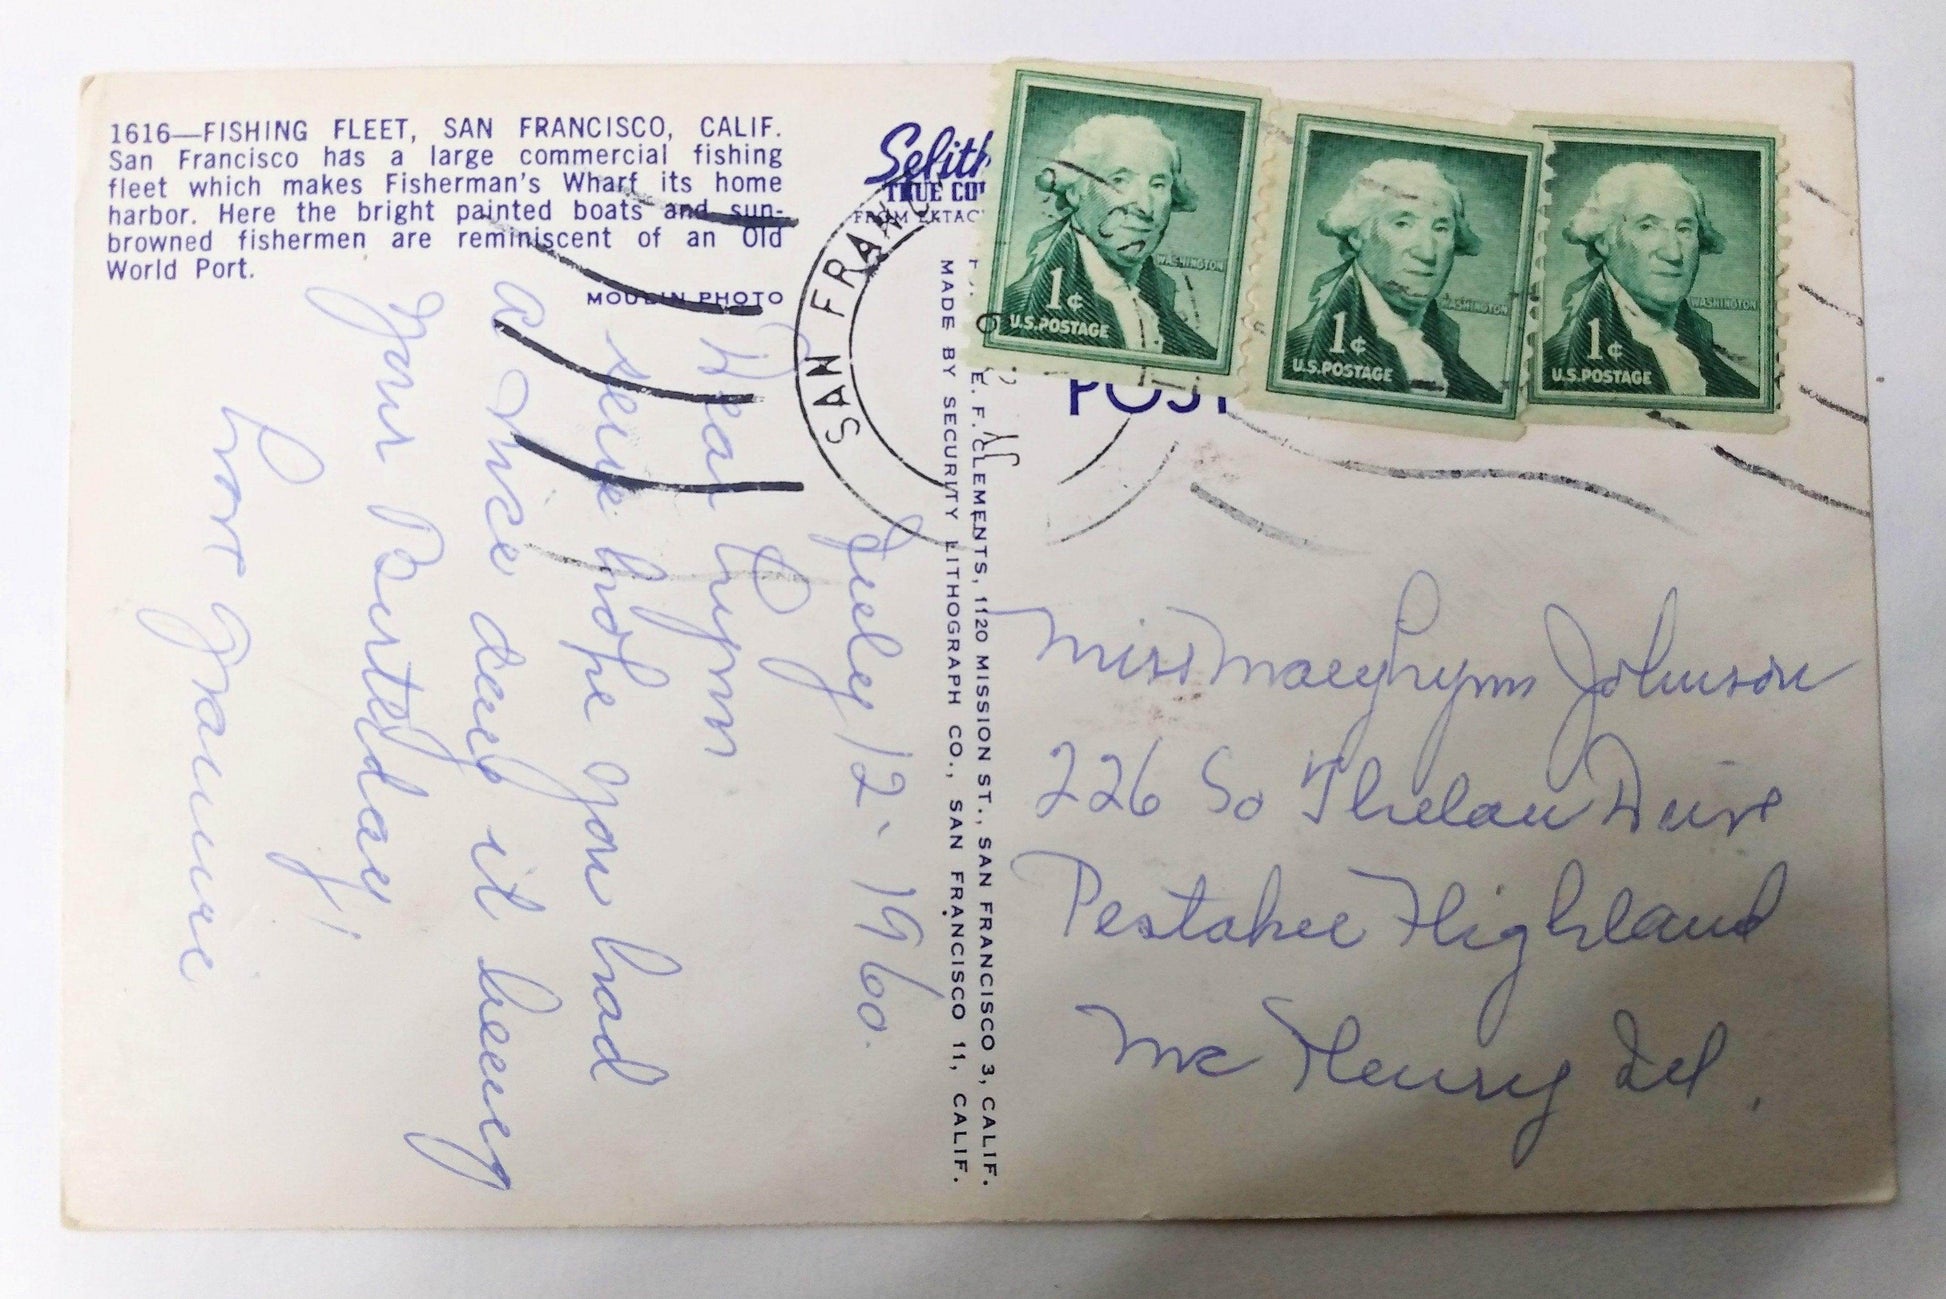 1616—FISHING FLEET, SAN FRANCISCO, CALIF.
San Francisco has a large commercial fishing
fleet which makes Fisherman's Wharf its home
harbor. Here the bright painted boats and sun-
browned fishermen are reminiscent of an Old
World Port.
MOULIN PHOTO
July 12- 1960.
Dear Lynn
seuk hope you had
a nice day it being
your Birthday!
Love Grannie
Selith
TRUE CO
FROM EKTAC
SAN FRANC
E. F. CLEMENTS, 1120 MISSION ST., SAN FRANCISCO 3, CALIF.
MADE BY SECURITY LITHOGRAPH CO., SAN FRANCISCO 11, CALIF.
WASHINGTON
1¢
U.S. POSTAGE
WASHINGTON
1¢
U.S. POSTAGE
WASHINGTON
1¢
U.S. POSTAGE
POST
Miss Mary Lynn Johnson
226 So Thelan Drive
Pestakee Highland
Mc Henry Ill.